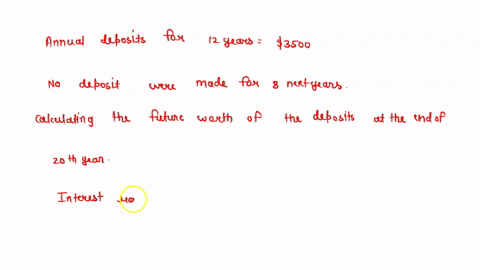 Annual deposits for 12 years = $3500
No deposit were made for 8 next years.
Calculating the future worth of the deposits at the end of
20th year.
Interest